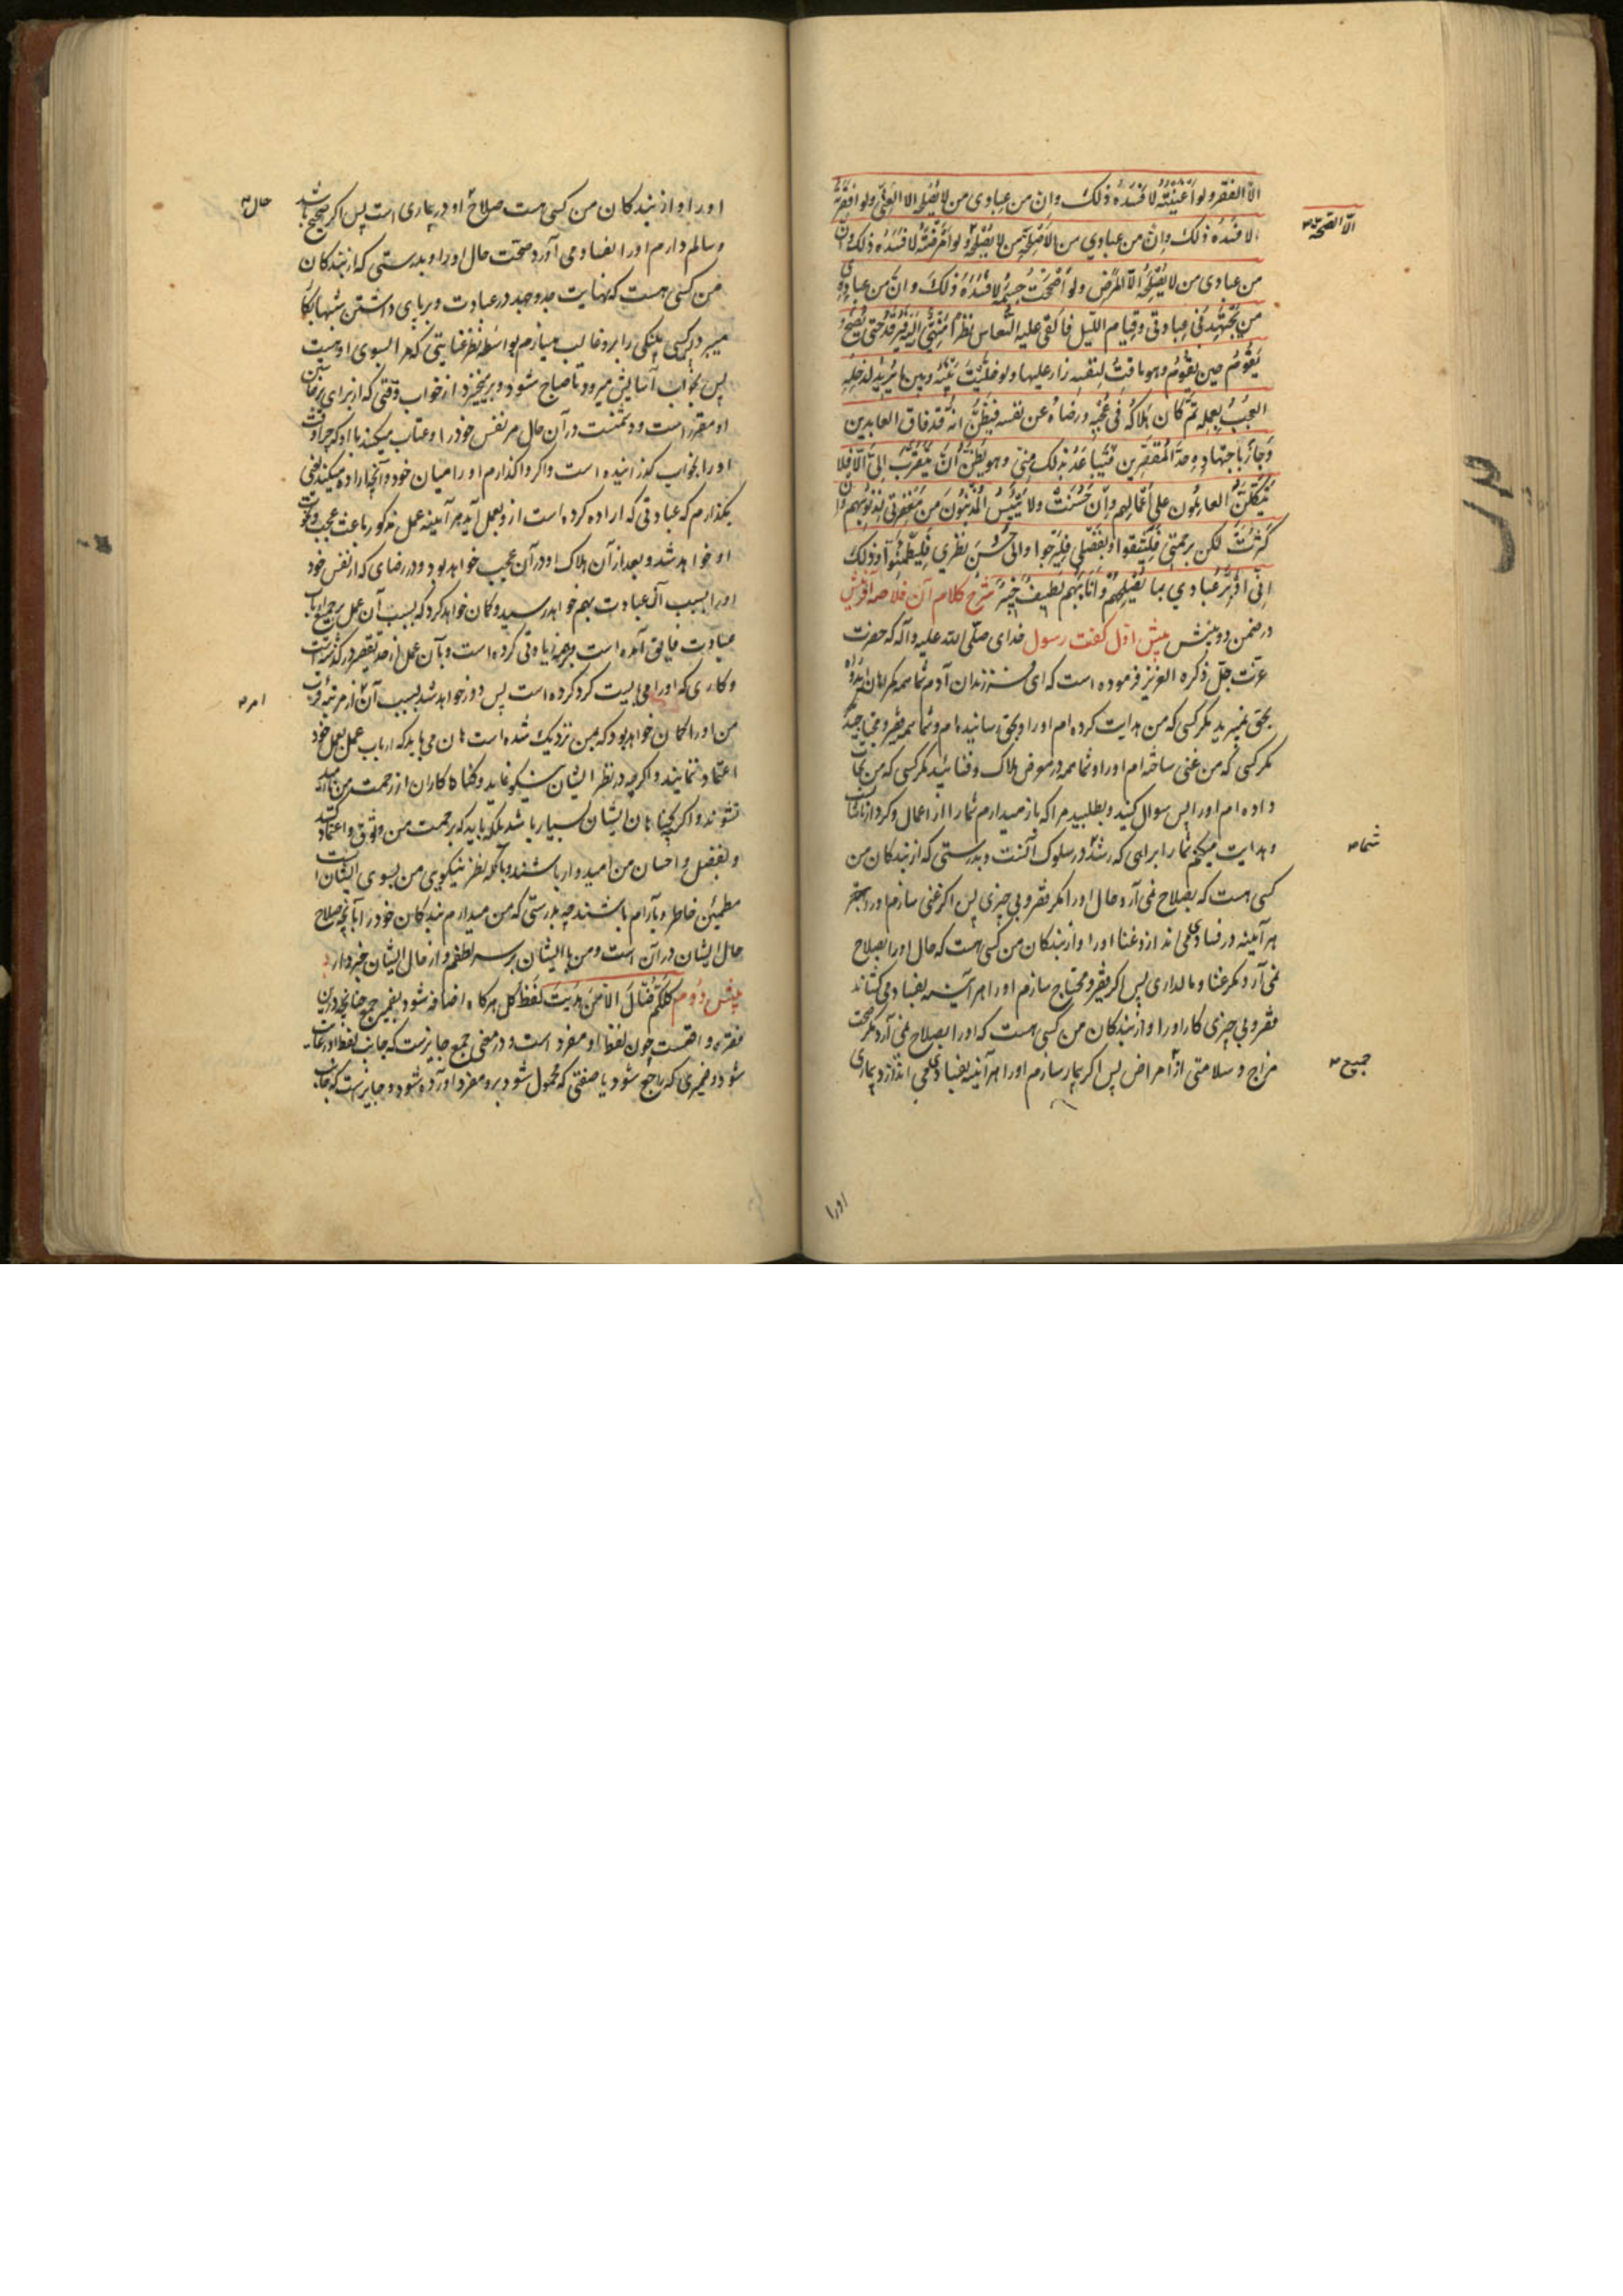 الا الفقر ولو اغنيته لافسده ذلك وان من عبادي من لا يصلحه الا الغنى ولو افقرته
لافسده ذلك وان من عبادي من لا يصلحه الا الصحة ولو امرضته لافسده ذلك وان
من عبادي من لا يصلحه الا المرض ولو اصححت جسمه لافسده ذلك وان من عبادي
من يجتهد في عبادتي وقيام الليل فالقي عليه النعاس نظرا مني اليه فيرقد حتى يصبح و
يقوم حين يقوم وهو ماقت لنفسه زار عليها ولو خليت بينه وبين ما يريد لدخله
العجب بعمله ثم كان هلاكه في عجبه ورضاه عن نفسه فيظن انه قد فاق العابدين
وجاز باجتهاده حد المقصرين فيتباعد بذلك مني وهو يظن ان يتقرب الي الا فلا
يتكلن العاملون على اعمالهم وان حسنت ولا ييئس المذنبون من مغفرتي لذنوبهم وان
كثرت لكن برحمتي فليثقوا وبفضلي فليرجوا والى حسن نظري فليطمئنوا وذلك
اني ادبر عبادي بما يصلحهم وانا بهم لطيف خبير شرح كلام آن خلاصه آفرينش
در ضمن دو بينش بينش اول گفت رسول خداى صلى الله عليه وآله كه حضرت
عزت جل ذكره العزيز فرموده است كه اى فرزندان آدم شما همه گمراهان ايد و راه
بحق نميبريد مگر كسى كه من هدايت كرده ام اورا وبحق رسانيده ام وشما همه فقير ومحتاجيد
مگر كسى كه من غنى ساخته ام اورا وشما همه در معرض هلاك وفنائيد مگر كسى كه من نجات
داده ام اورا پس سوال كنيد وبطلبيد مرا كه باز ميدارم شما را از اعمال وكردار ناشايست
وهدايت ميكنم شما را براهى كه رشد شما در سلوك آنست وبدرستى كه از بندگان من
كسى هست كه بصلاح نمى آرد حال اورا مگر فقر وبى چيزى پس اگر غنى سازم اورا
هر آينه در فساد مى اندازد غنا اورا واز بندگان من كسى هست كه حال اورا بصلاح
نمى آرد مگر غنا ومالدارى پس اگر فقير ومحتاج سازم اورا هر آينه بفساد مى كشاند
فقر وبى چيزى كار اورا واز بندگان من كسى هست كه اورا بصلاح نمى آرد مگر صحت
مزاج وسلامتى از امراض پس اگر بيمار سازم اورا هر آينه بفساد مى اندازد بيمارى
اورا
الا الصحة
شما
جميع
اورا واز بندگان من كسى هست صلاح او در بيمارى است پس اگر صحيح باشد
وسالم دارم اورا بفساد مى آورد صحت حال اورا وبدرستى كه از بندگان
من كسى هست كه نهايت جد وجهد در عبادت وبر پاى داشتن شبها بكار
ميبرد پس پينكى را برو غالب ميسازم بواسطه نظر عنايتى كه مرا بسوى اوست
پس بخواب آسايش ميرود تا صباح شود وبر ميخيزد از خواب وقتى كه از براى برخاستن
او مقرر است ودشمنست در آن حال مر نفس خود را وعتاب ميكند با او كه چرا وقت
اورا بخواب گذرانيده است واگر واگذارم اورا ميان خود وآنچه اراده ميكند يعنى
بگذارم كه عبادتى كه اراده كرده است ازو بعمل آيد هر آينه عمل مذكور باعث عجب ونخوت
او خواهد شد وبعد از آن هلاك او در آن عجب خواهد بود ودر رضاى كه از نفس خود
اورا بسبب آن عبادت بهم خواهد رسيد وگمان خواهد كرد كه بسبب آن عمل بر جميع ارباب
عبادت فايق آمده است وبر همه زيادتى كرده است وبآن عمل از حد تقصير در گذشته است
وكارى كه اورا مى بايست كرد كرده است پس دور خواهد شد بسبب آن از مرتبه قرب
من واورا گمان خواهد بود كه بمن نزديك شده است هان مى بايد كه ارباب عمل بعمل خود
اعتماد ننمايند واگر چه در نظر ايشان نيكو نمايد وگناه كاران از رحمت من نااميد
نشوند واگر چه گناهان ايشان بسيار باشد بلكه بايد كه برحمت من وثوق واعتماد كنند
وبفضل واحسان من اميدوار باشند وبآنكه نظر نيكويى من بسوى ايشان است
مطمئن خاطر وبآرام باشند چه بدرستى كه من ميدارم بندگان خود را بآنچه صلاح
حال ايشان در آن است ومن با ايشان بر سر لطفم واز حال ايشان خبردار
بينش دوم كلكم ضال الا من هديت لفظ كل هرگاه اضافه شود بضمير جمع چنانچه در اين
فقره واقعست چون لفظ او مفرد است ودر معنى جمع جايزست كه جانب لفظ او رعايت
شود وضميرى كه راجع شود يا صفتى كه محمول شود برو مفرد آورده شود وجايزست كه جانب
حال
امر